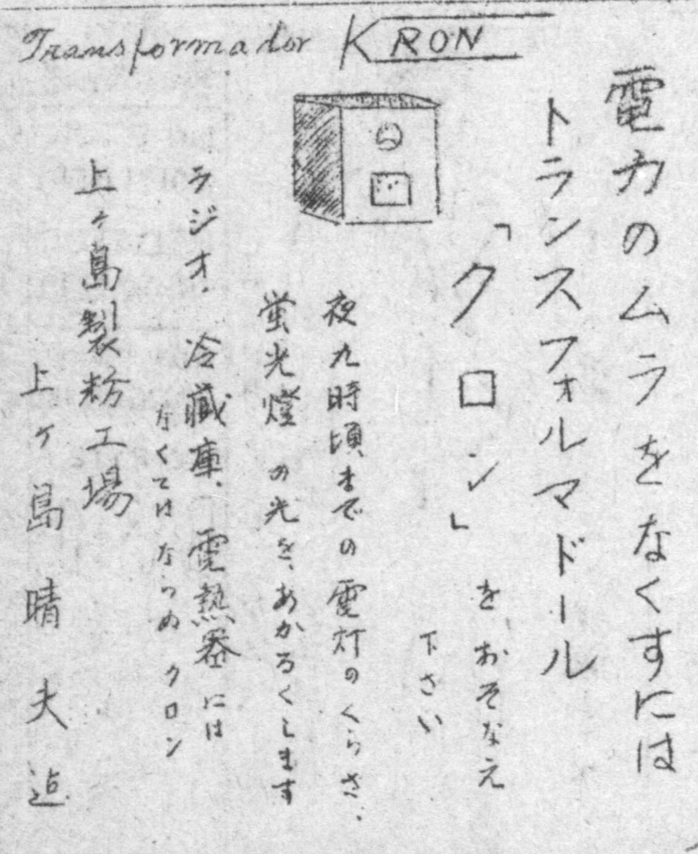 Transformador KRON
電力のムラをなくすには
トランスフォルマドール
「クロン」をおそなえ
下さい
夜九時頃までの電灯のくらさ、
蛍光燈の光を、あかるくします
ラジオ、冷蔵庫、電熱器には
なくてはならぬクロン
上ヶ島製粉工場
上ヶ島晴夫迠